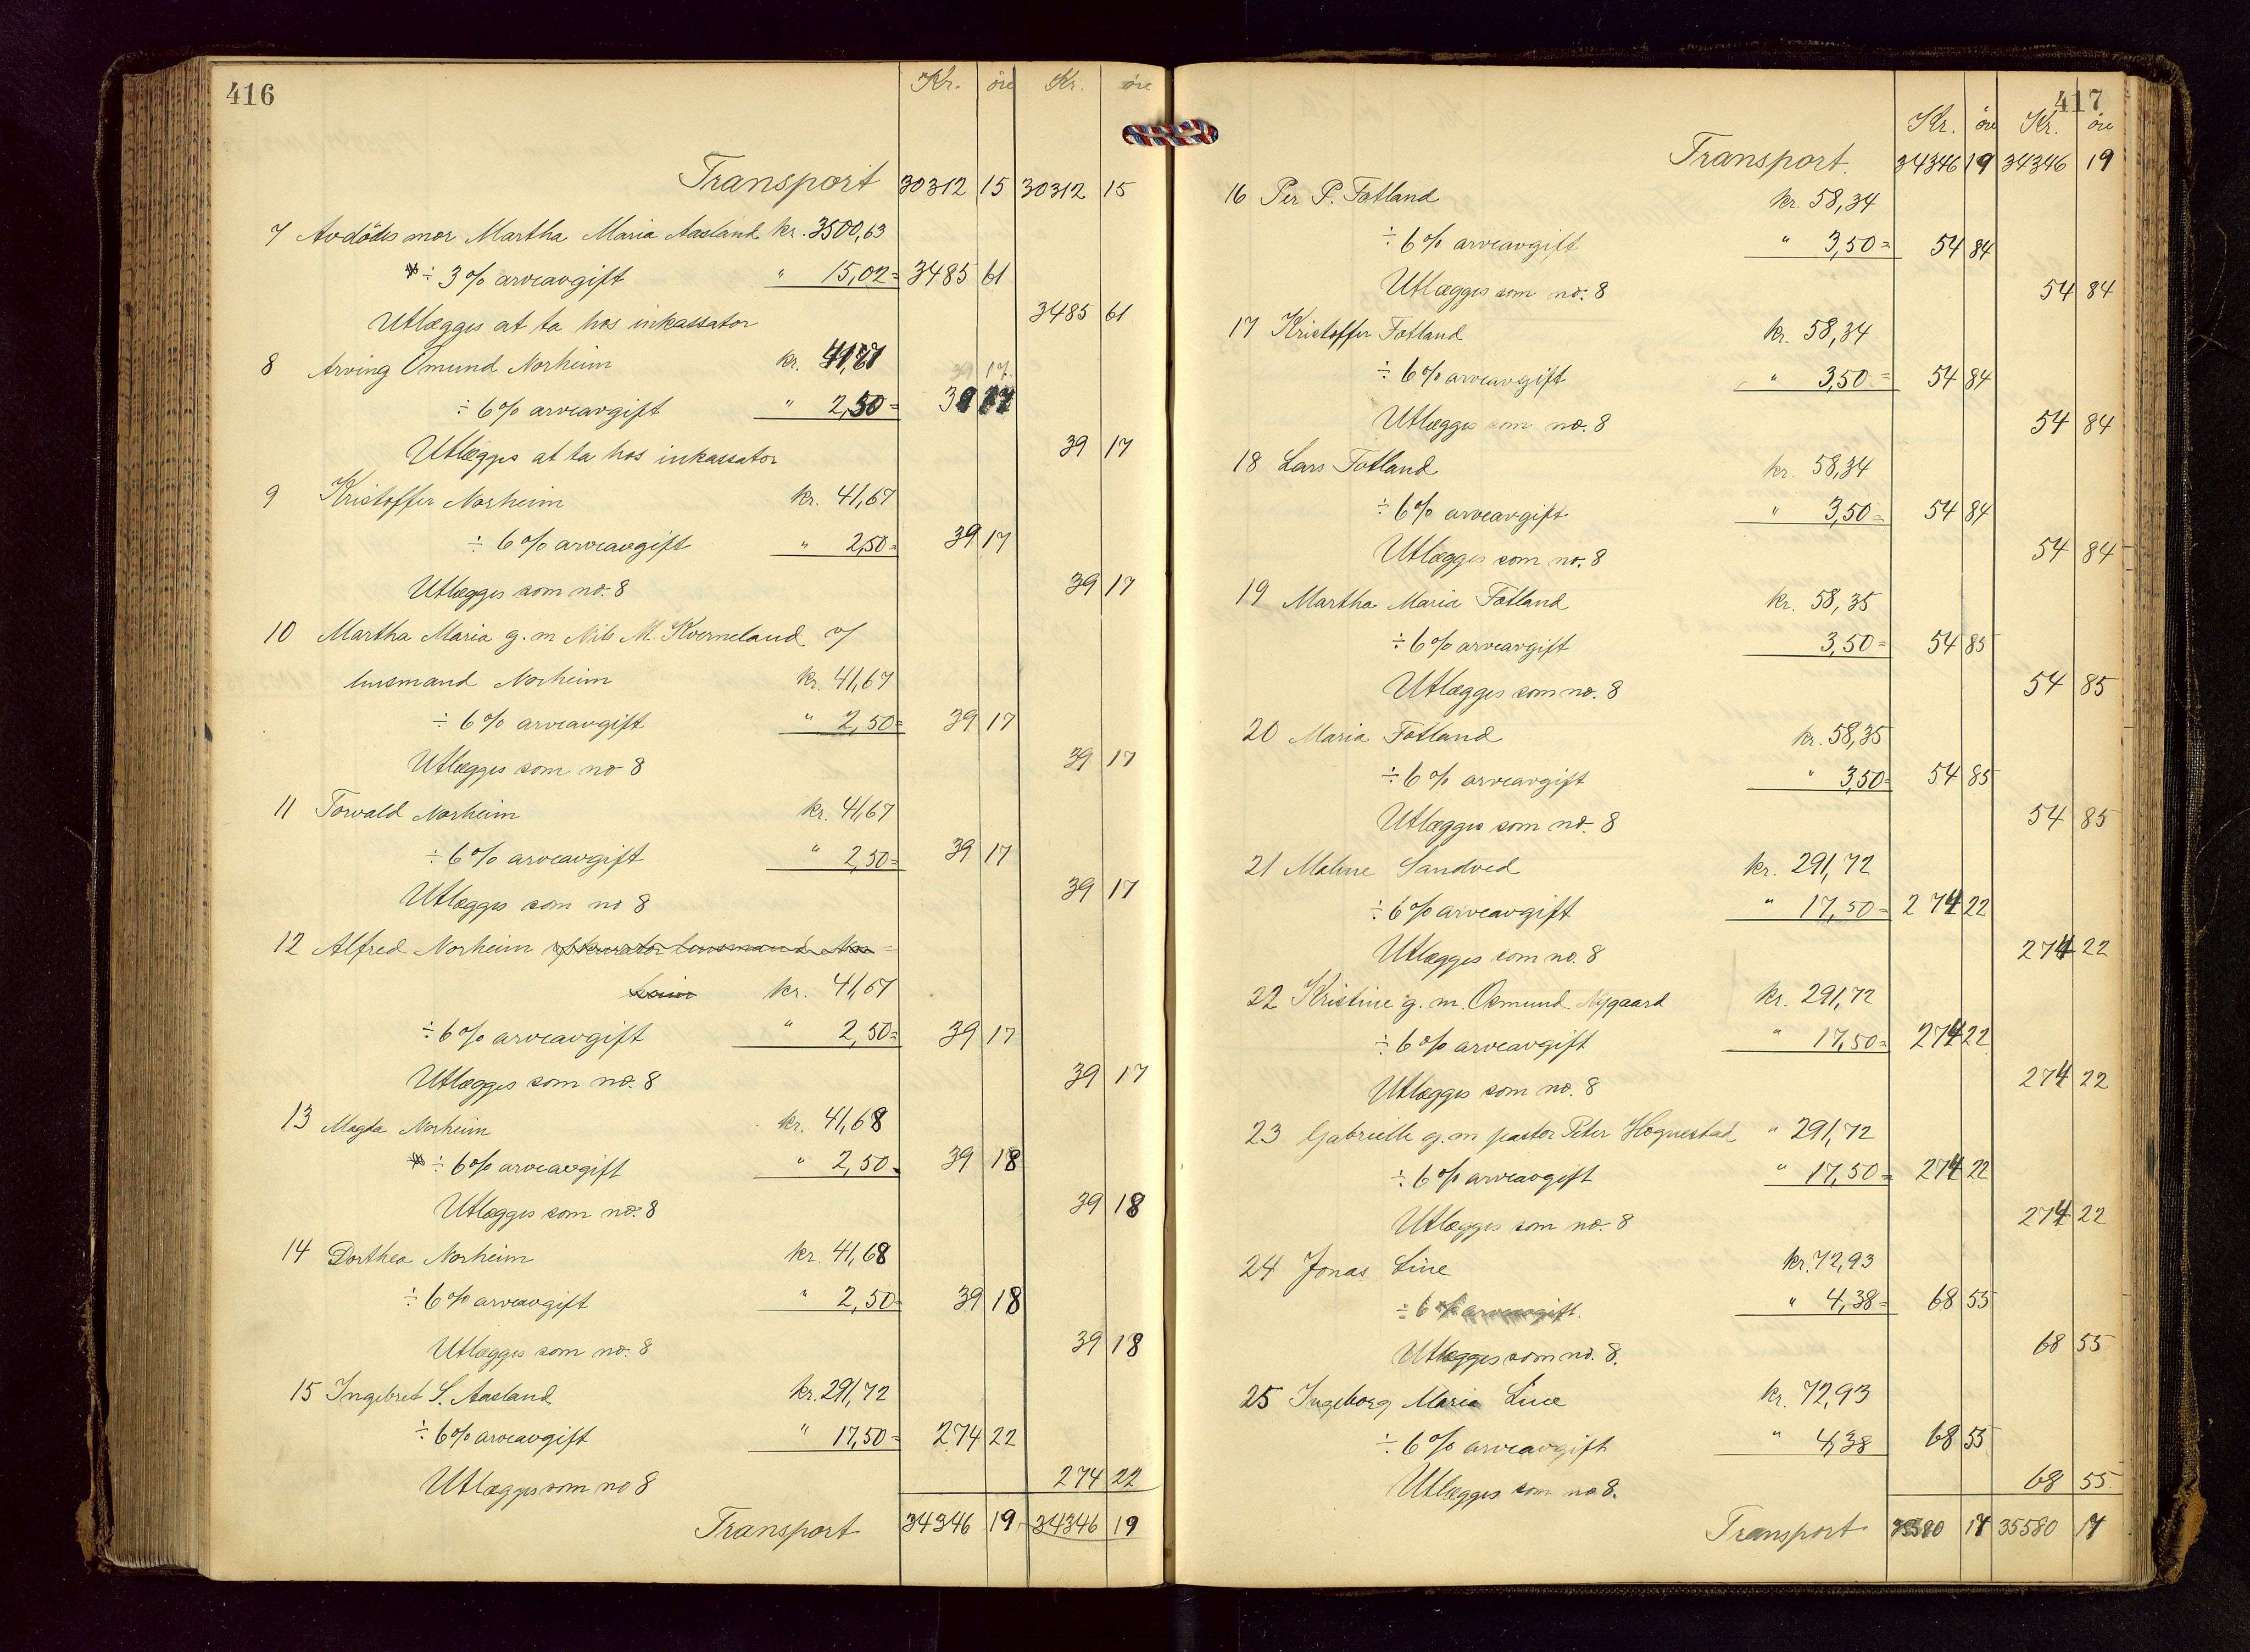 416
Kr. øre Kr. øre
Transport 30312 15 30312 15
7 Avdødes mor Martha Maria Aasland kr. 3500,63
÷ 3% arveavgift " 15,02 = 3485 61
Utlægges at ta hos inkassator 3485 61
8 Arving Omund Norheim kr. 41,67 39 17.
÷ 6% arveavgift " 2,50 = 39 17
Utlægges at ta hos inkassator 39 17
9 Kristoffer Norheim kr. 41,67
÷ 6% arveavgift " 2,50 = 39 17
Utlægges som no. 8 39 17
10 Martha Maria g. m Nils M. Kverneland v/
lensmand Norheim kr. 41,67
÷ 6% arveavgift " 2,50 = 39 17
Utlægges som no 8 39 17
11 Torvald Norheim kr. 41,67
÷ 6% arveavgift " 2,50 = 39 17
Utlægges som no 8 39 17
12 Alfred Norheim v/ kurator lensmand Nor=
heim kr. 41,67
÷ 6% arveavgift " 2,50 = 39 17
Utlægges som no. 8 39 17
13 Magda Norheim kr. 41,68
÷ 6% arveavgift " 2,50 = 39 18
Utlægges som no. 8 39 18
14 Dorthea Norheim kr. 41,68
÷ 6% arveavgift " 2,50 = 39 18
Utlægges som no. 8 39 18
15 Ingebret S. Aasland kr. 291,72
÷ 6% arveavgift " 17,50 = 274 22
Utlægges som no 8 274 22
Transport 34346 19 34346 19
417
Kr. øre Kr. øre
Transport. 34346 19 34346 19
16 Per P. Fotland kr. 58,34
÷ 6% arveavgift " 3,50 = 54 84
Utlægges som no. 8 54 84
17 Kristoffer Fotland kr. 58,34
÷ 6% arveavgift " 3,50 = 54 84
Utlægges som no. 8 54 84
18 Lars Fotland kr. 58,34
÷ 6% arveavgift " 3,50 = 54 84
Utlægges som no. 8 54 84
19 Martha Maria Fotland kr. 58,35
÷ 6% arveavgift 3,50 = 54 85
Utlægges som no. 8 54 85
20 Maria Fotland kr. 58,35
÷ 6% arveavgift " 3,50 = 54 85
Utlægges som no. 8 54 85
21 Maline Sandved kr. 291,72
÷ 6% arveavgift " 17,50 = 274 22
Utlægges som no. 8 274 22
22 Kristine g. m. Osmund Nygaard kr. 291,72
÷ 6% arveavgift " 17,50 = 274 22
Utlægges som no. 8 274 22
23 Gabrielle g. m pastor Peter Hognestad " 291,72
÷ 6% arveavgift " 17,50 = 274 22
Utlægges som no. 8 274 22
24 Jonas Line kr. 72,93
÷ 6% arveavgift. " 4,38 = 68 55
Utlægges som no. 8. 68 55
25 Ingeborg Maria Line kr. 72,93
÷ 6% arveavgift " 4,38 68 55
Utlægges som no 8. 68 55
Transport 35580 17 35580 17